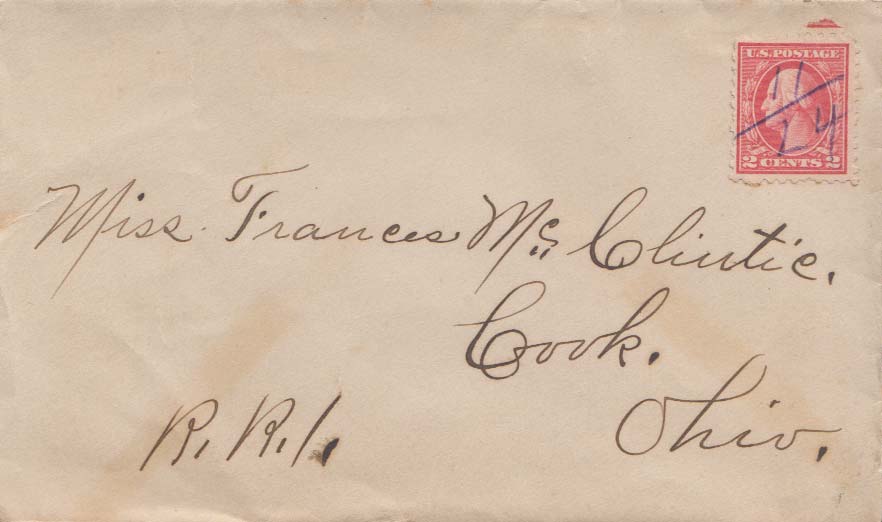 U.S. POSTAGE
11
24
2 CENTS 2
Miss. Frances Mc Clintic.
Cook.
Ohio.
R. R. 1.